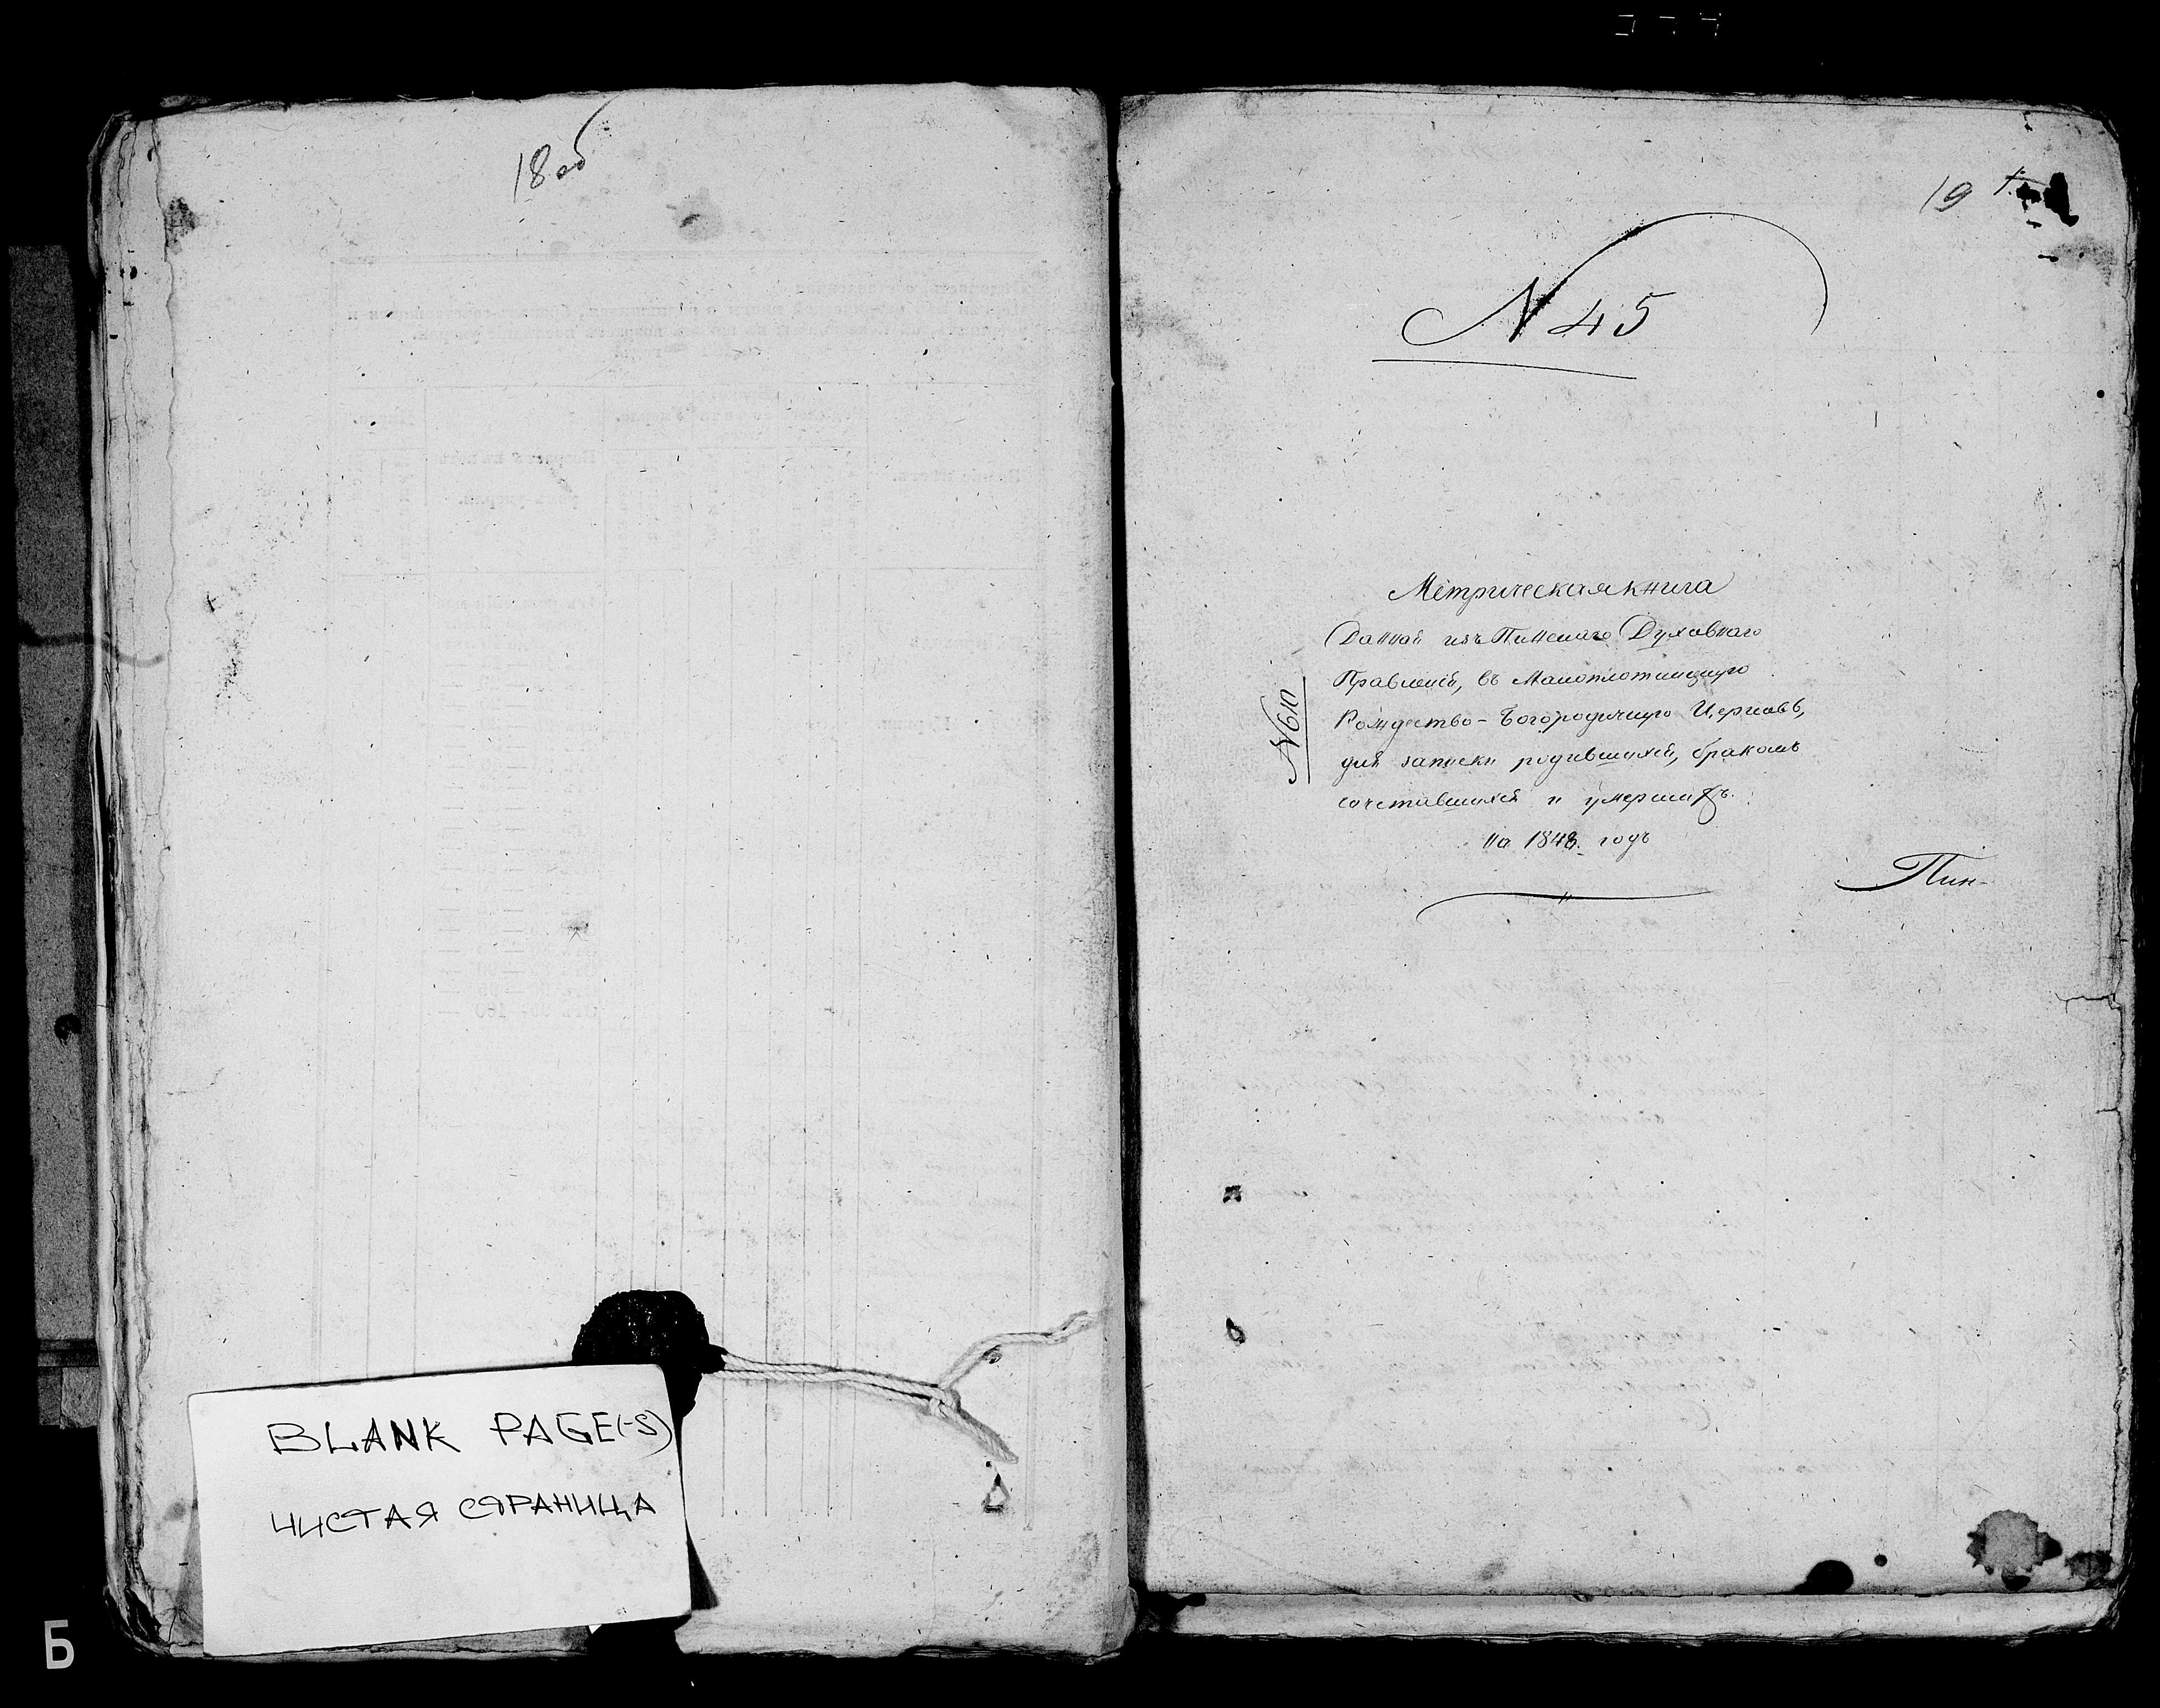 18 об
BLANK PAGE(-S)
ЧИСТАЯ СТРАНИЦА
Б
19
N 45
Метрическая книга
Данная изъ Пинскаго Духовнаго
Правленія, въ Малоплотницкую
Рождество-Богородичную Церковь,
для записки родившихся, бракомъ
сочетавшихся и умершихъ.
на 1848. годъ
N 610
Пин-